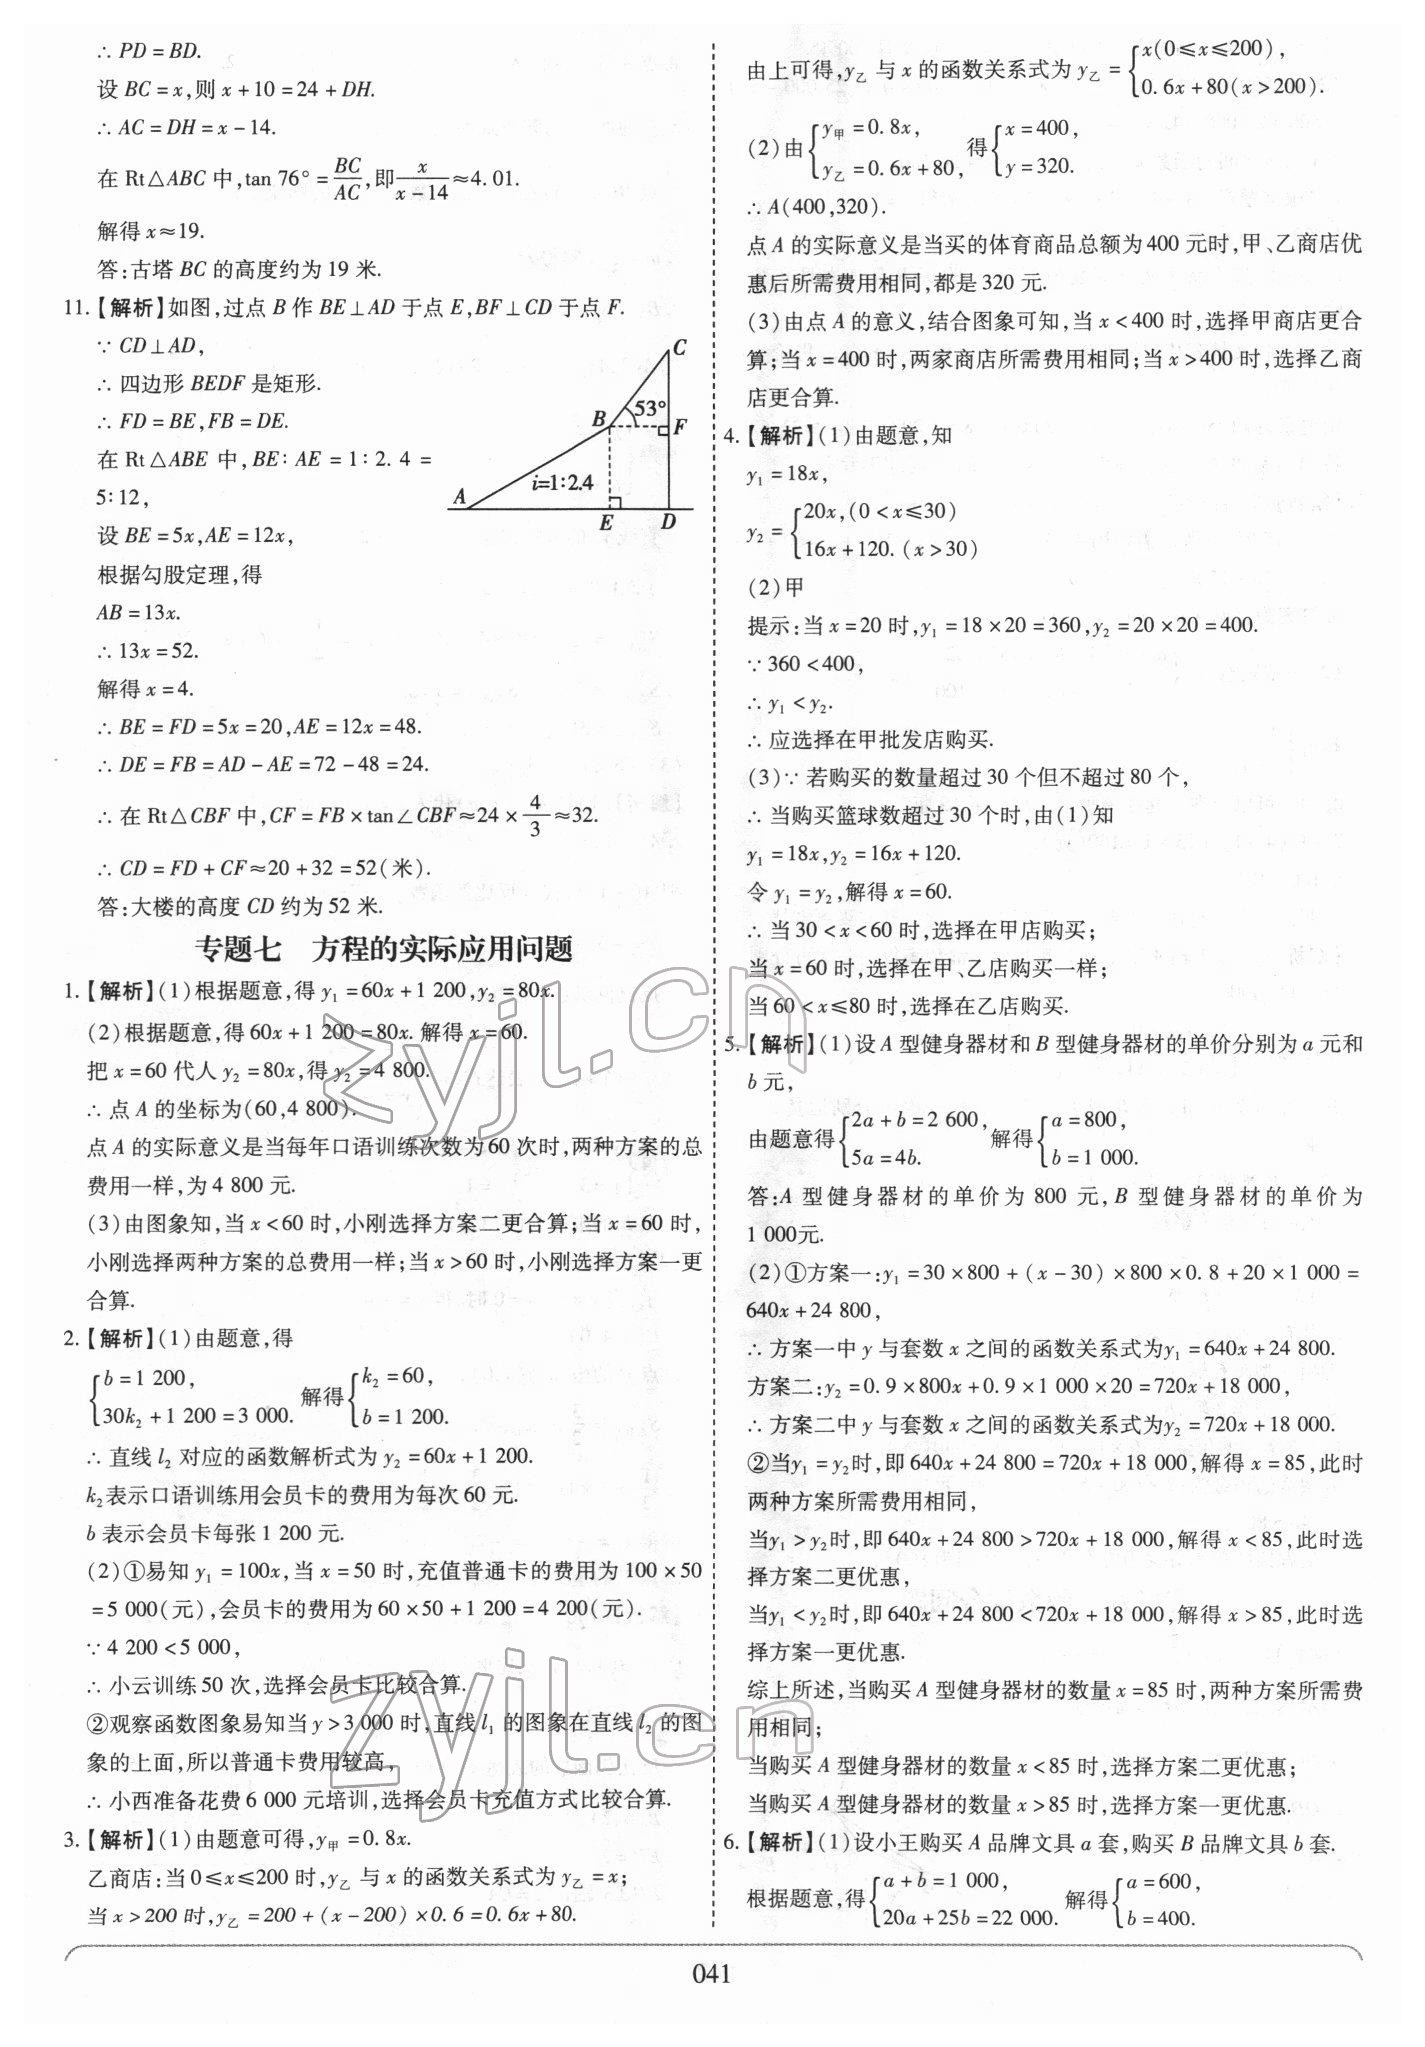 ∴ PD = BD.
设 BC = x,则 x + 10 = 24 + DH.
∴ AC = DH = x - 14.
在 Rt△ABC 中,tan 76° = BC/AC,即 x/(x - 14) ≈ 4.01.
解得 x ≈ 19.
答:古塔 BC 的高度约为 19 米.
11.【解析】如图,过点 B 作 BE⊥AD 于点 E,BF⊥CD 于点 F.
∵ CD⊥AD,
∴ 四边形 BEDF 是矩形.
∴ FD = BE,FB = DE.
在 Rt△ABE 中,BE∶AE = 1∶2.4 =
5∶12,
设 BE = 5x,AE = 12x,
根据勾股定理,得
AB = 13x.
∴ 13x = 52.
解得 x = 4.
∴ BE = FD = 5x = 20,AE = 12x = 48.
∴ DE = FB = AD - AE = 72 - 48 = 24.
∴ 在 Rt△CBF 中,CF = FB × tan∠CBF ≈ 24 × 4/3 ≈ 32.
∴ CD = FD + CF ≈ 20 + 32 = 52(米).
答:大楼的高度 CD 约为 52 米.
C
B
53°
F
i=1∶2.4
A
E
D
专题七 方程的实际应用问题
1.【解析】(1)根据题意,得 y₁ = 60x + 1 200,y₂ = 80x.
(2)根据题意,得 60x + 1 200 = 80x. 解得 x = 60.
把 x = 60 代人 y₂ = 80x,得 y₂ = 4 800.
∴ 点 A 的坐标为(60,4 800).
点 A 的实际意义是当每年口语训练次数为 60 次时,两种方案的总
费用一样,为 4 800 元.
(3)由图象知,当 x < 60 时,小刚选择方案二更合算;当 x = 60 时,
小刚选择两种方案的总费用一样;当 x > 60 时,小刚选择方案一更
合算.
2.【解析】(1)由题意,得
{b = 1 200, 30k₂ + 1 200 = 3 000. 解得 {k₂ = 60, b = 1 200.
∴ 直线 l₂ 对应的函数解析式为 y₂ = 60x + 1 200.
k₂表示口语训练用会员卡的费用为每次 60 元.
b 表示会员卡每张 1 200 元.
(2)①易知 y₁ = 100x,当 x = 50 时,充值普通卡的费用为 100 × 50
= 5 000(元),会员卡的费用为 60 × 50 + 1 200 = 4 200(元).
∵ 4 200 < 5 000,
∴ 小云训练 50 次,选择会员卡比较合算.
②观察函数图象易知当 y > 3 000 时,直线 l₁ 的图象在直线 l₂ 的图
象的上面,所以普通卡费用较高,
∴ 小西准备花费 6 000 元培训,选择会员卡充值方式比较合算.
3.【解析】(1)由题意可得,y甲 = 0.8x.
乙商店:当 0 ≤ x ≤ 200 时,y乙 与 x 的函数关系式为 y乙 = x;
当 x > 200 时,y乙 = 200 + (x - 200) × 0.6 = 0.6x + 80.
由上可得,y乙 与 x 的函数关系式为 y乙 = {x(0 ≤ x ≤ 200), 0.6x + 80(x > 200).
(2)由 {y甲 = 0.8x, y乙 = 0.6x + 80, 得 {x = 400, y = 320.
∴ A(400,320).
点 A 的实际意义是当买的体育商品总额为 400 元时,甲、乙商店优
惠后所需费用相同,都是 320 元.
(3)由点 A 的意义,结合图象可知,当 x < 400 时,选择甲商店更合
算;当 x = 400 时,两家商店所需费用相同;当 x > 400 时,选择乙商
店更合算.
4.【解析】(1)由题意,知
y₁ = 18x,
y₂ = {20x,(0 < x ≤ 30) 16x + 120.(x > 30)
(2)甲
提示:当 x = 20 时,y₁ = 18 × 20 = 360,y₂ = 20 × 20 = 400.
∵ 360 < 400,
∴ y₁ < y₂.
∴ 应选择在甲批发店购买.
(3)∵ 若购买的数量超过 30 个但不超过 80 个,
∴ 当购买篮球数超过 30 个时,由(1)知
y₁ = 18x,y₂ = 16x + 120.
令 y₁ = y₂,解得 x = 60.
∴ 当 30 < x < 60 时,选择在甲店购买;
当 x = 60 时,选择在甲、乙店购买一样;
当 60 < x ≤ 80 时,选择在乙店购买.
5.【解析】(1)设 A 型健身器材和 B 型健身器材的单价分别为 a 元和
b 元,
由题意得 {2a + b = 2 600, 5a = 4b. 解得 {a = 800, b = 1 000.
答:A 型健身器材的单价为 800 元,B 型健身器材的单价为
1 000元.
(2)①方案一:y₁ = 30 × 800 + (x - 30) × 800 × 0.8 + 20 × 1 000 =
640x + 24 800,
∴ 方案一中 y 与套数 x 之间的函数关系式为y₁ = 640x + 24 800.
方案二:y₂ = 0.9 × 800x + 0.9 × 1 000 × 20 = 720x + 18 000,
∴ 方案二中 y 与套数 x 之间的函数关系式为y₂ = 720x + 18 000.
②当y₁ = y₂时,即 640x + 24 800 = 720x + 18 000,解得 x = 85,此时
两种方案所需费用相同,
当y₁ > y₂时,即 640x + 24 800 > 720x + 18 000,解得 x < 85,此时选
择方案二更优惠,
当y₁ < y₂时,即 640x + 24 800 < 720x + 18 000,解得 x > 85,此时选
择方案一更优惠.
综上所述,当购买 A 型健身器材的数量 x = 85 时,两种方案所需费
用相同;
当购买 A 型健身器材的数量 x < 85 时,选择方案二更优惠;
当购买 A 型健身器材的数量 x > 85 时,选择方案一更优惠.
6.【解析】(1)设小王购买 A 品牌文具 a 套,购买 B 品牌文具 b 套.
根据题意,得 {a + b = 1 000, 20a + 25b = 22 000. 解得 {a = 600, b = 400.
041
zyjl.cn
zyjl.cn